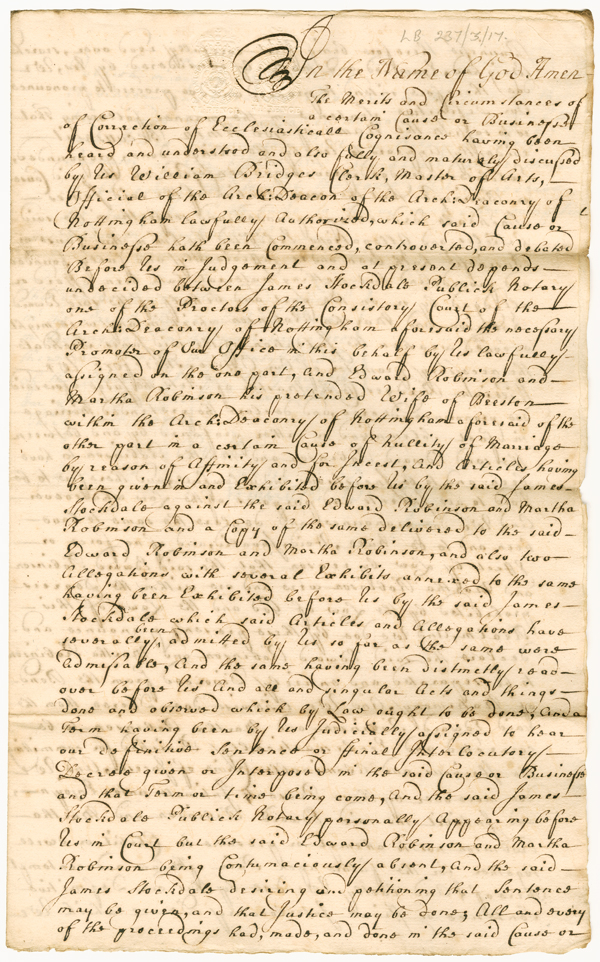 LB 237/3/17.
In the Name of God Amen
The Merits and Circumstances of
a certain Cause or Business
of Correction of Ecclesiasticall Cognisance having been
heard and understood and also fully and maturely discussed
by Us William Bridges Clerk, Master of Arts,
Official of the ArchDeacon of the ArchDeaconry of
Nottingham lawfully Authorized, which said Cause or
Businesse hath been Commenced, controverted, and debated
Before Us in Judgement and at present depends
undecided between James Stockdale Publick Notary
one of the Proctors of the Consistory Court of the
ArchDeaconry of Nottingham aforesaid the necessary
Promoter of Our Office in this behalf by Us lawfully
assigned on the one part, And Edward Robinson and
Martha Robinson his pretended Wife of Beeston
within the ArchDeaconry of Nottingham aforesaid of the
other part in a certain Cause of Nullity of Marriage
by reason of Affinity and for Incest, And Articles having
been given in and Exhibited before us by the said James
Stockdale against the said Edward Robinson and Martha
Robinson and a Copy of the same delivered to the said
Edward Robinson and Martha Robinson, and also two
Allegations with several Exhibits annexed to the same
having been Exhibited before Us by the said James
Stockdale which said Articles and Allegations have
been
severally, admitted by Us so far as the same were
admissable, And the same having been distinctly read
over before Us And all and singular Acts and things
done and observed which by Law ought to be done, And a
Term having been by Us Judicially assigned to hear
our definitive Sentence or final Interlocutory
Decree given or Interposed in the said Cause or Business
and that Term or time being come, And the said James
Stockdale Publick Notary personally Appearing before
Us in Court but the said Edward Robinson and Martha
Robinson being Contumaciously absent, And the said
James Stockdale desiring and petitioning that Sentence
may be given, and that Justice may be done, All and every
of the proceedings had, made, and done in the said Cause or